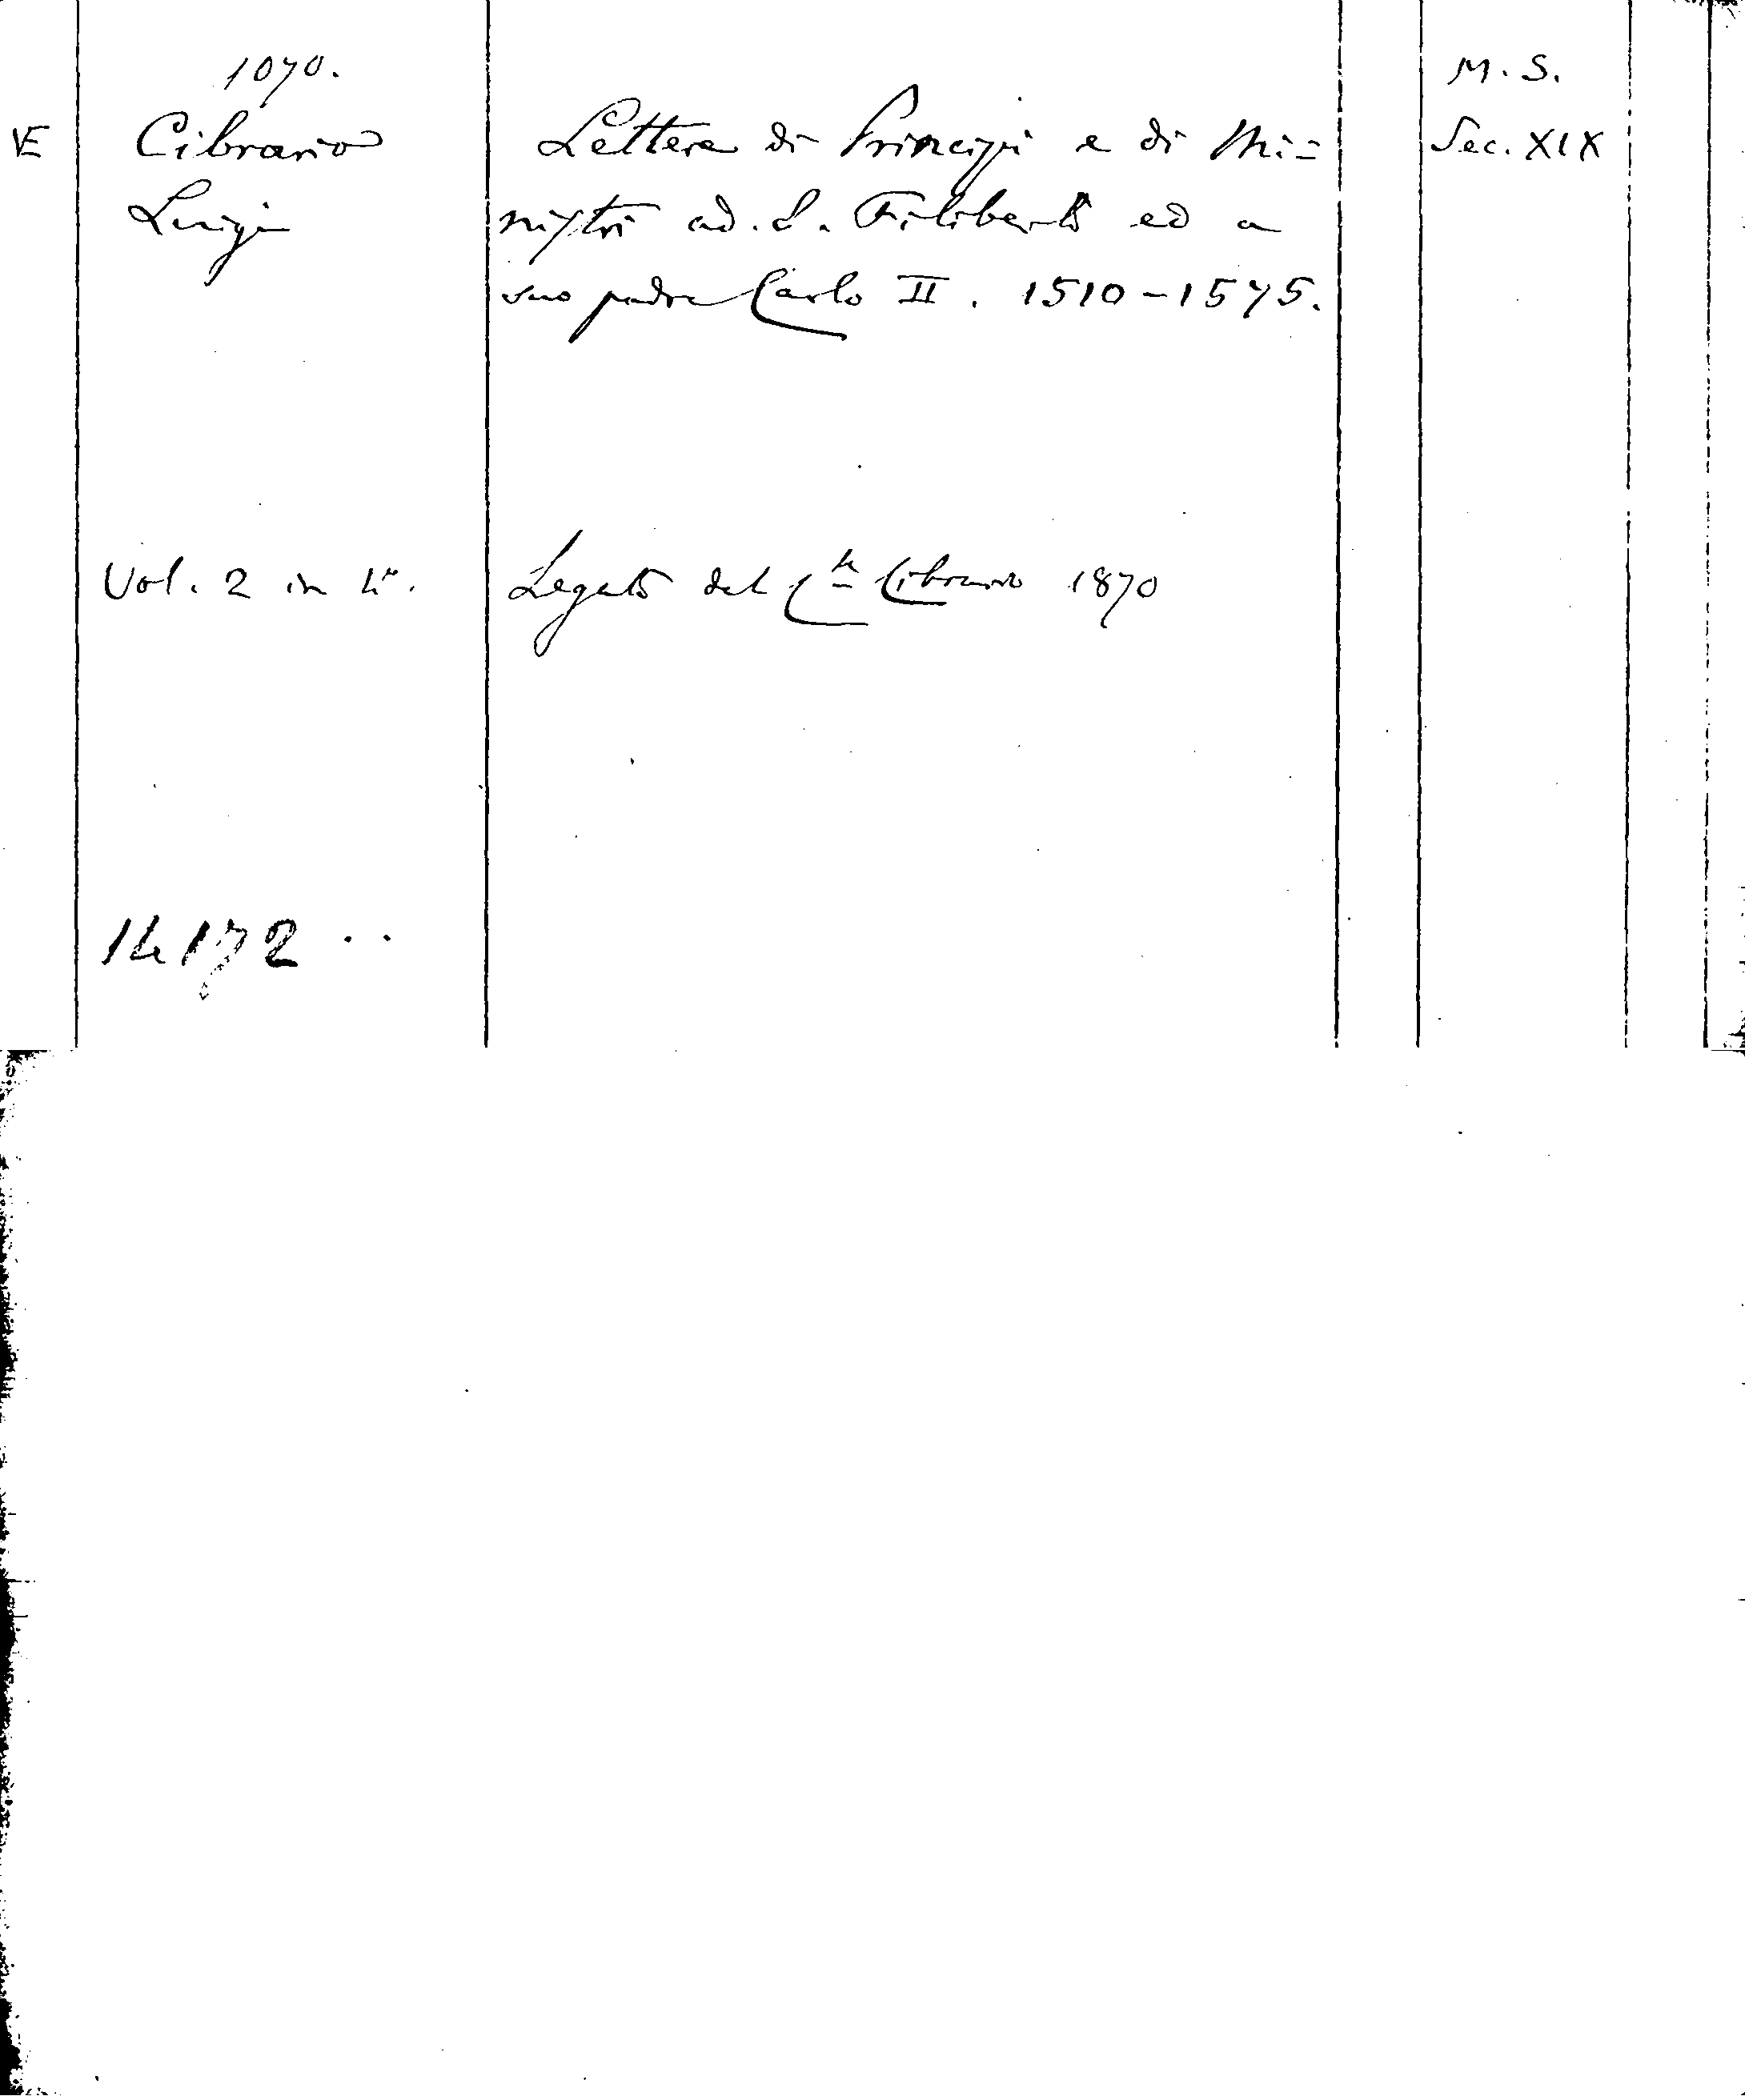 1070.
M. S.
VE
Cibrario
Lettere di Principi e di Mi=
Sec. XIX
Luigi
nistri ad. E. Filiberto ed a
suo padre Carlo II. 1510-1575.
Vol. 2 in 4º.
Legato del Cte Cibrario 1870
14172